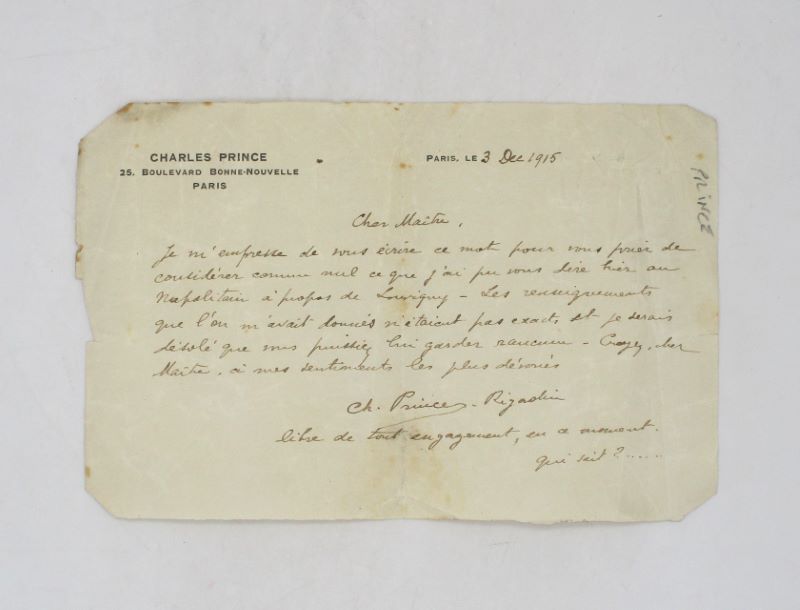 CHARLES PRINCE
25, BOULEVARD BONNE-NOUVELLE
PARIS
PARIS, LE 3 Dec 1915
PRINCE
Cher Maître,
Je m'empresse de vous écrire ce mot pour vous prier de
considérer comme nul ce que j'ai pu vous dire hier au
Napolitain à propos de Louvigny - Les renseignements
que l'on m'avait donnés n'étaient pas exacts et je serais
désolé que vous puissiez lui garder rancune - Croyez, cher
Maître, à mes sentiments les plus dévoués
Ch. Prince - Rigadin
libre de tout engagement, en ce moment.
qui sait ? .....